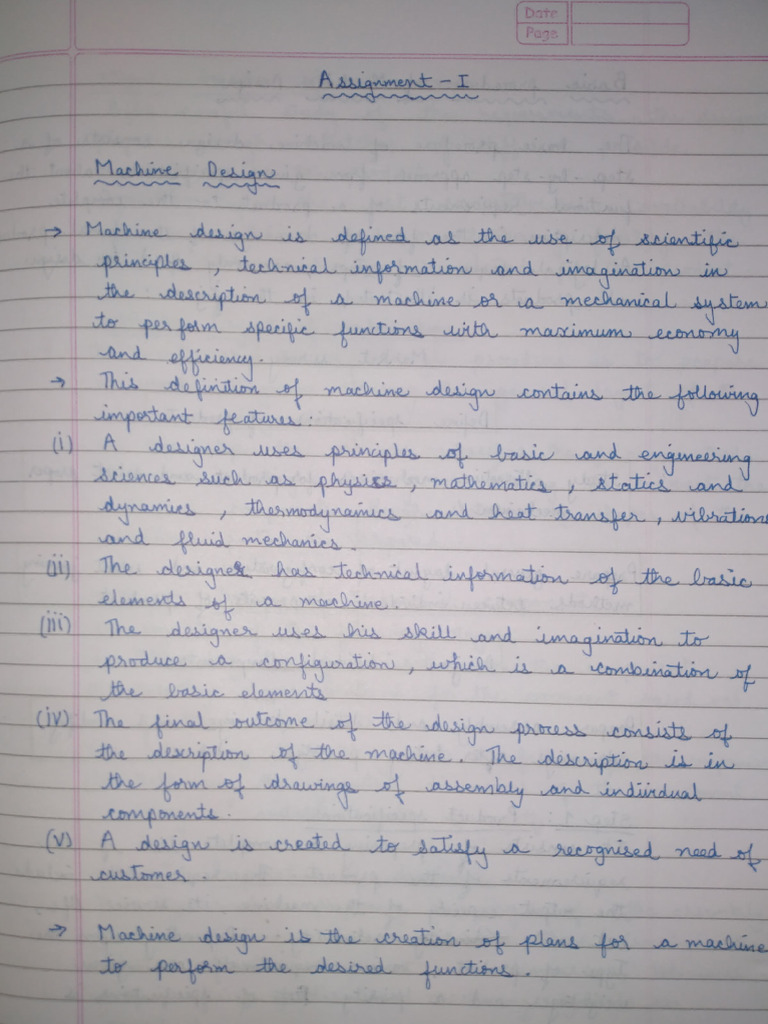 Date
Page
Assignment - I
Machine Design
→ Machine design is defined as the use of scientific
principles, technical information and imagination in
the description of a machine or a mechanical system
to perform specific functions with maximum economy
and efficiency.
→ This definition of machine design contains the following
important features:
(i) A designer uses principles of basic and engineering
sciences such as physics, mathematics, statics and
dynamics, thermodynamics and heat transfer, vibrations
and fluid mechanics.
(ii) The designer has technical information of the basic
elements of a machine.
(iii) The designer uses his skill and imagination to
produce a configuration, which is a combination of
the basic elements
(iv) The final outcome of the design process consists of
the description of the machine. The description is in
the form of drawings of assembly and individual
components.
(v) A design is created to satisfy a recognised need of
customer.
→ Machine design is the creation of plans for a machine
to perform the desired functions.